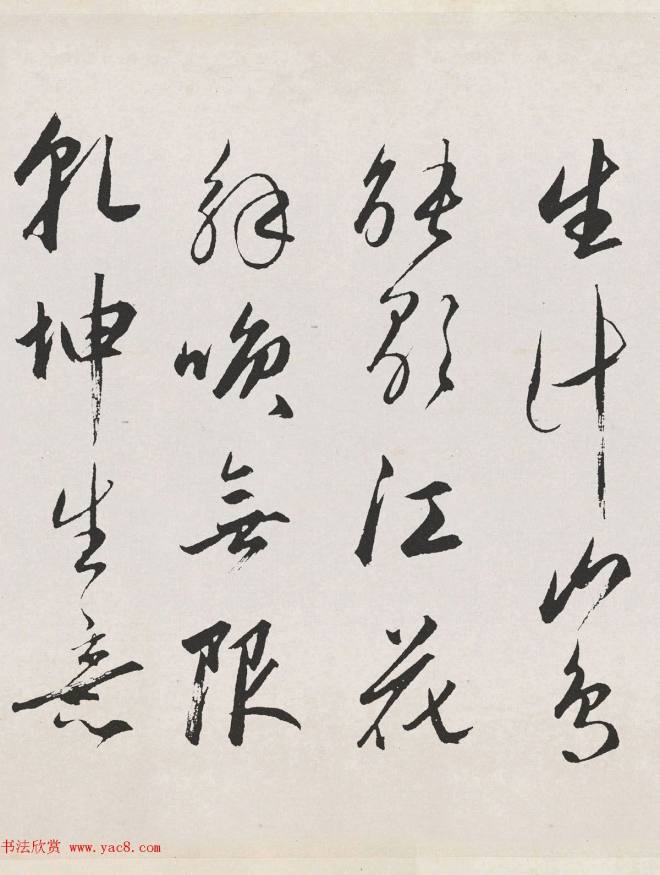 生計山鳥
能歌江花
解咲無限
乾坤生意
书法欣赏 www.yac8.com